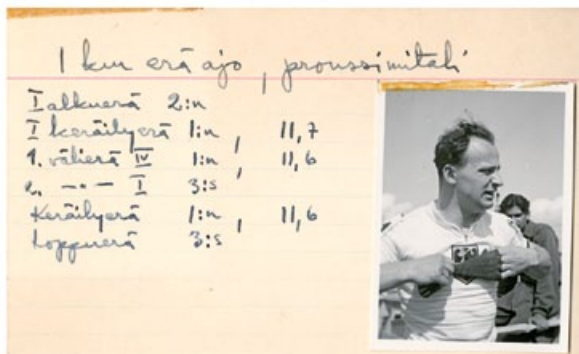 1 km erä ajo, pronssimitali
I alkuerä 2:n
I keräilyerä 1:n, 11,7
1. välierä IV 1:n, 11,6
2. —"— I 3:s
Keräilyerä 1:n, 11,6
Loppuerä 3:s